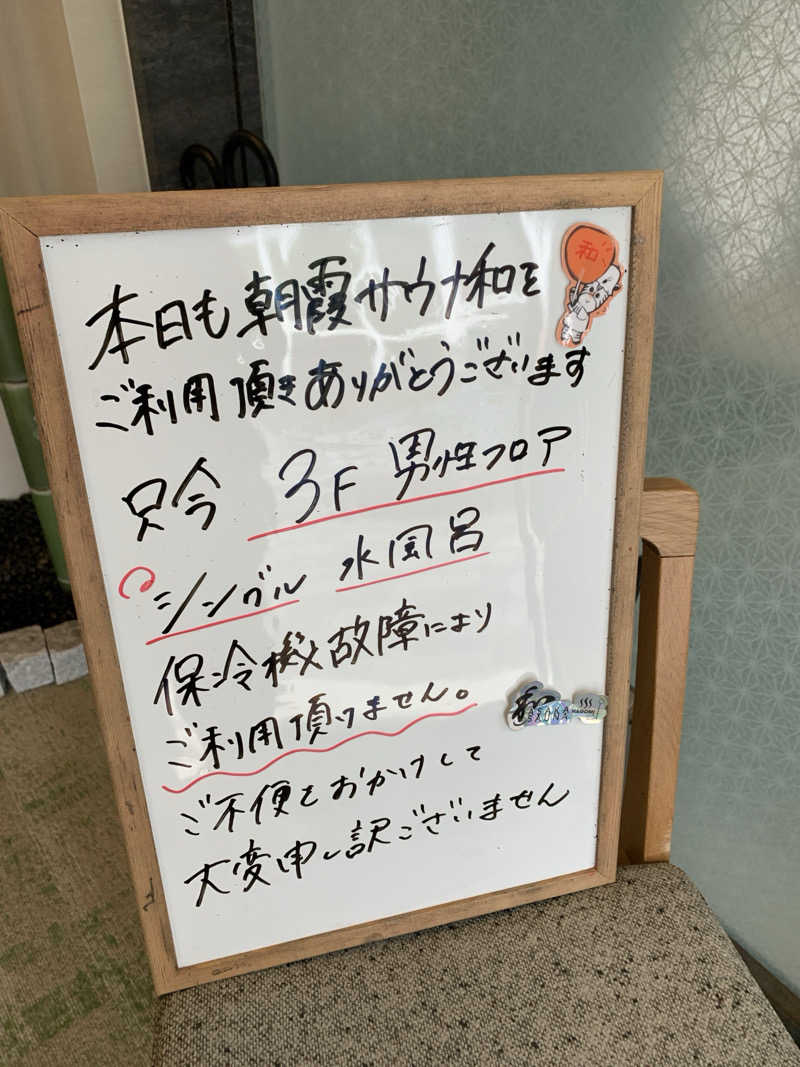 本日も朝霞サウナ和を
ご利用頂きありがとうございます
只今 3F 男性フロア
シングル 水風呂
保冷機故障により
ご利用頂けません。
ご不便をおかけして
大変申し訳ございません
和
和
NAGOMI